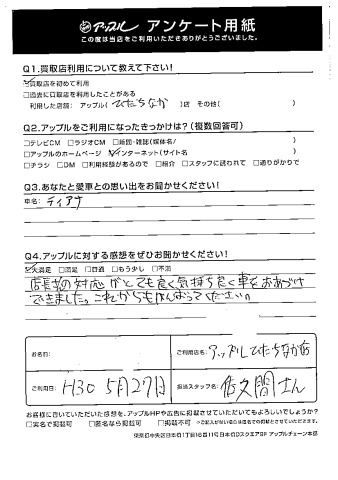 アップル アンケート用紙
この度は当店をご利用いただきありがとうございました。
Q1.買取店利用について教えて下さい!
☑買取店を初めて利用
□過去に買取店を利用したことがある
利用した店舗: アップル( ひたちなか )店 その他( )
Q2.アップルをご利用になったきっかけは?(複数回答可)
□テレビCM □ラジオCM □新聞・雑誌(媒体名/ )
□アップルのホームページ ☑インターネット(サイト名 )
□チラシ □DM □利用経験があるので □紹介 □スタッフに誘われて □通りがかりで
Q3.あなたと愛車との思い出をお聞かせください!
車名: ティアナ
Q4.アップルに対する感想をぜひお聞かせください!
☑大満足 □満足 □普通 □もう少し □不満
店長さんの対応がとても良く気持ち良く車をおあづけ
できました。これからもがんばってください。
お名前: ご利用店名: アップルひたちなか店
ご利用日: H30 5月27日 担当スタッフ名: 佐久間さん
お客様に書いていただいた感想を、アップルHPや広告に掲載させていただいてもよろしいでしょうか?
□実名で掲載可 □匿名なら掲載可 □掲載不可 ※ご記入が無い場合は匿名での掲載とさせていただきます。